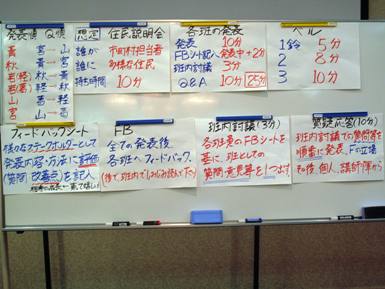 発表順 Q順
黄 宮→山
宮 秋→黄
若(軽) 若(軽)
秋 黄→
山 若→軽
若 軽←
想定 住民説明会
誰が 市町村担当者
誰に 多様な住民
持ち時間 10分
各班の発表
発表 10分
FBシート記入 発表中+2分
班内討議 3分
Q&A 10分 25分
ベル
1鈴 5分
2 8分
3 10分
フィードバックシート
様々なステークホルダーとして
発表内容・方法に評価
(質問・改善点)を記入
FB
全ての発表後
各班へフィードバック
(後で、班内でしみじみ読んで下さい)
班内討議(3分)
各班員のFBシートを
基に、班としての
質問・意見等を1つ出す。
質疑応答(10分)
班内討議での質問等を
順番に発表、
その後、個人、講師等から